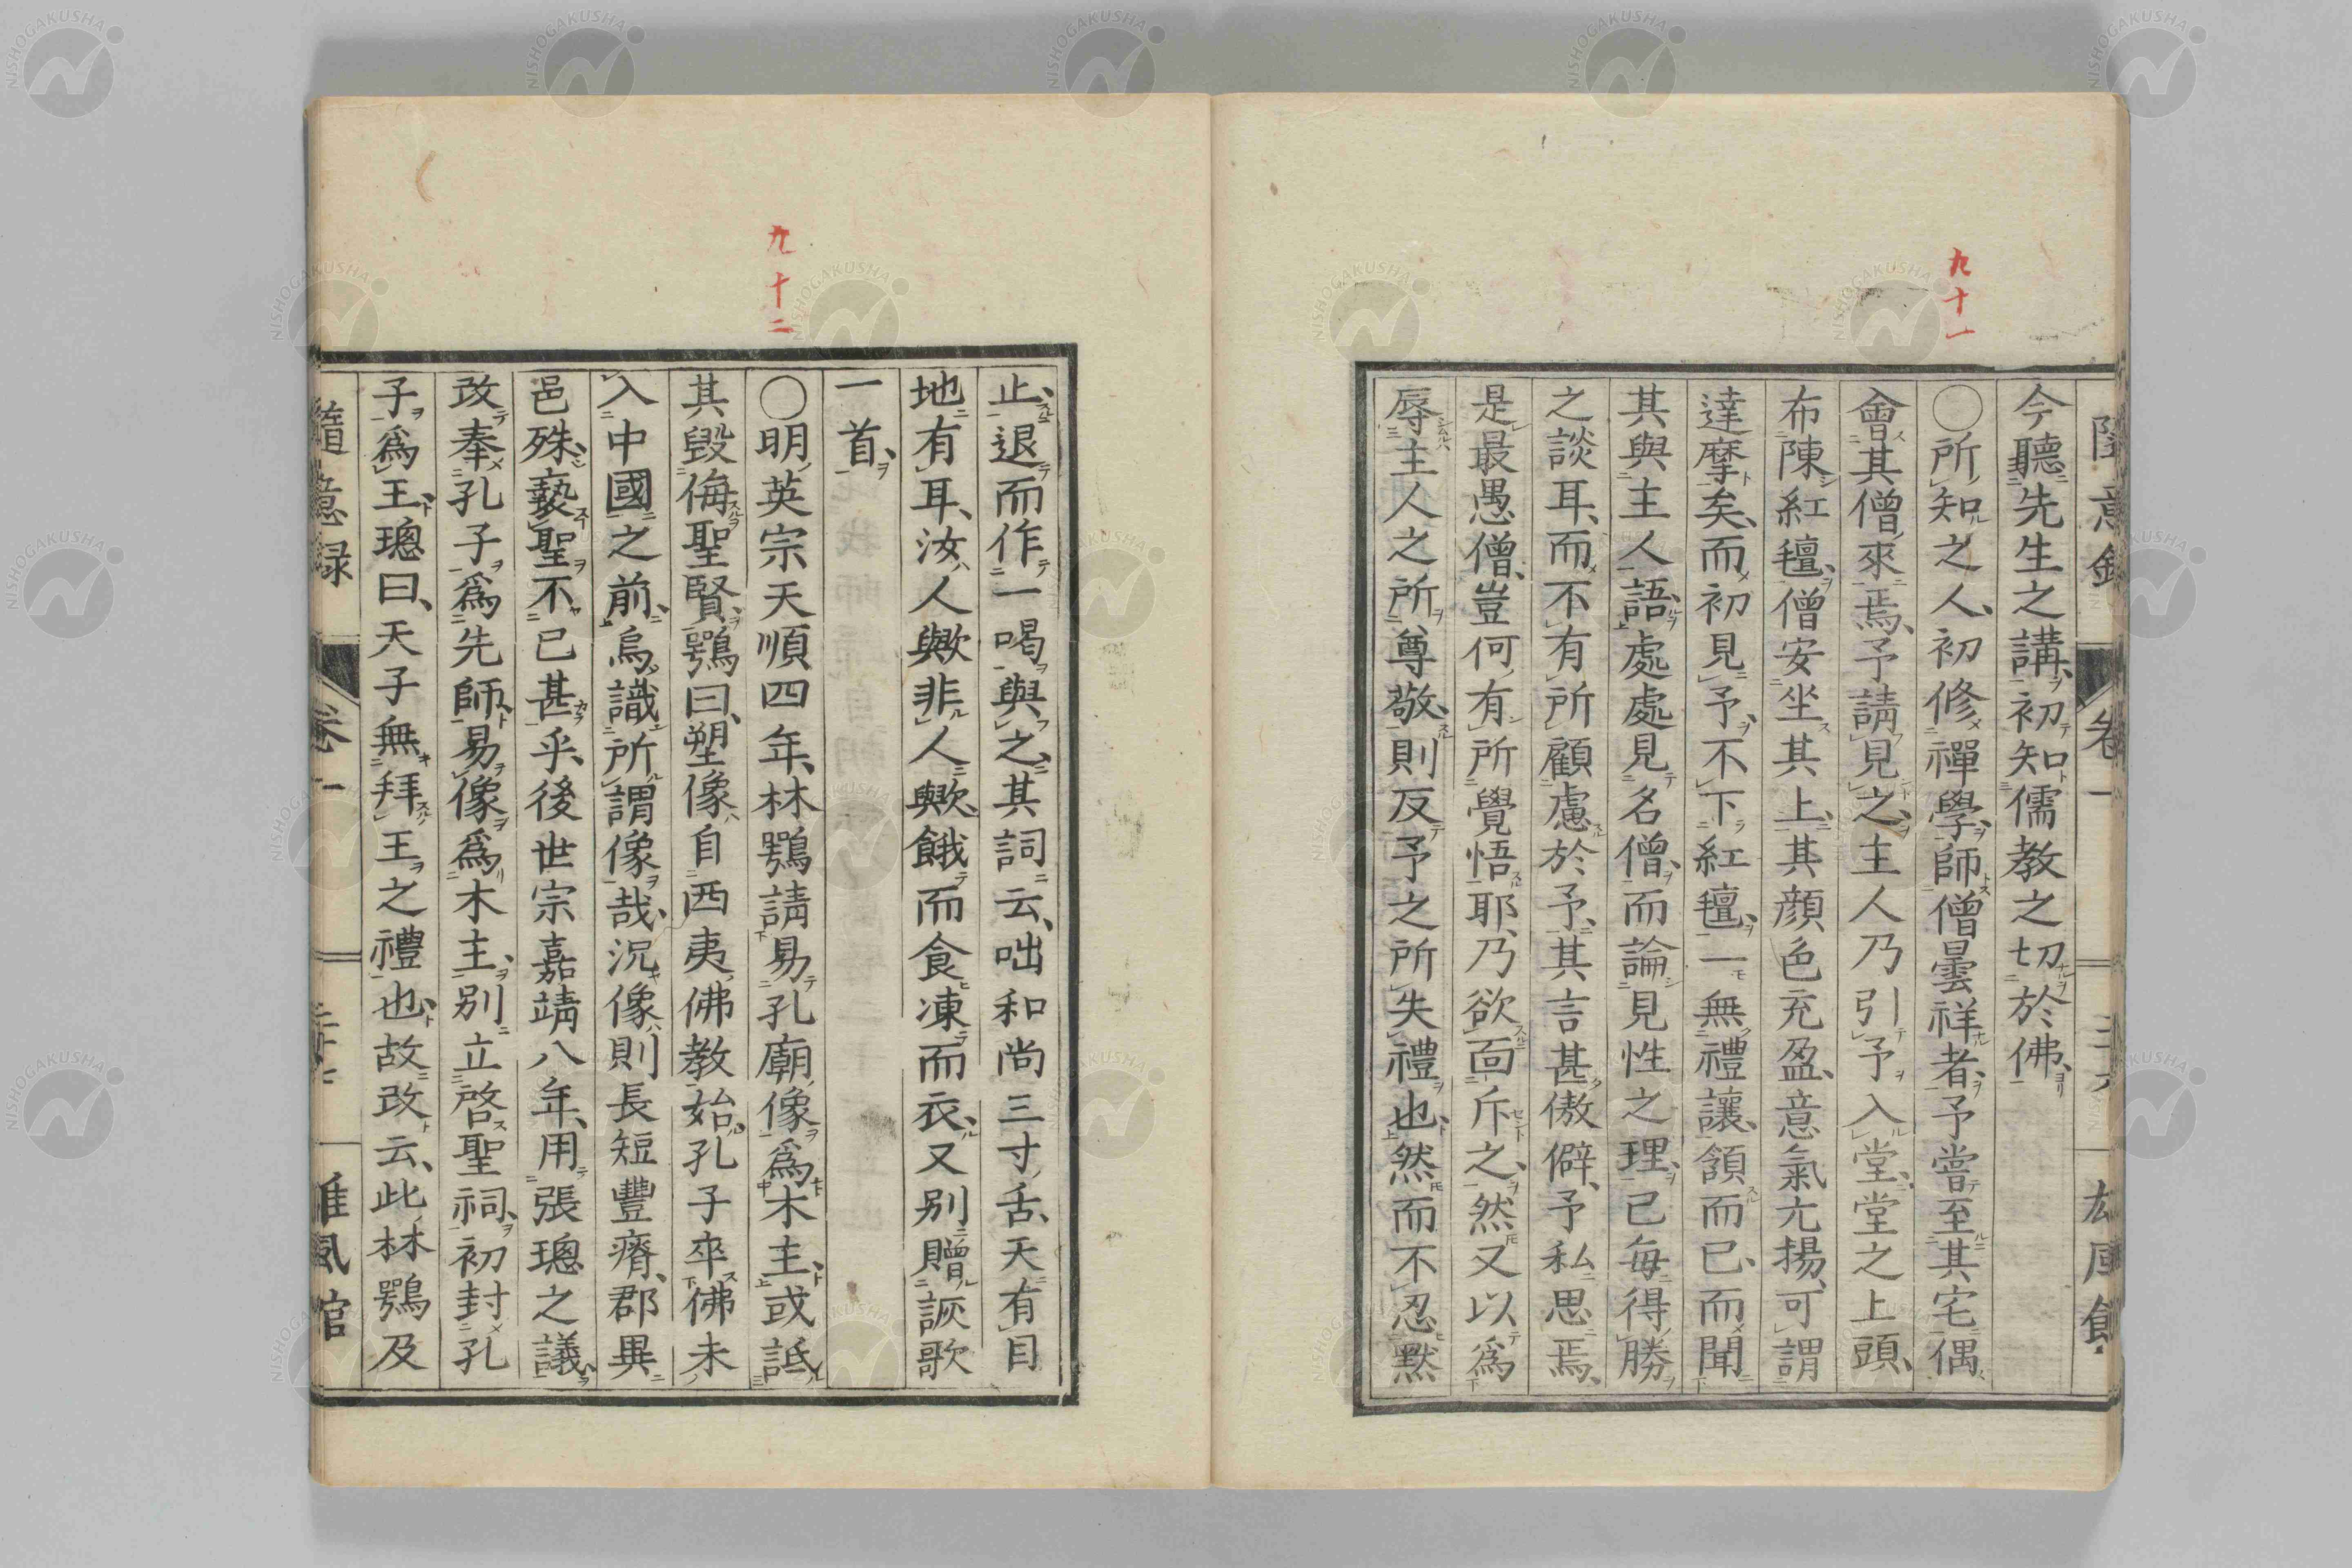 九十一
今聽先生之講、初知儒教之切於佛、
〇所知之人、初修禪學、師僧曇祥者、予嘗至其宅、偶
會其僧來焉、予請見之、主人乃引予入堂、堂之上頭、
布陳紅氊、僧安坐其上、其顔色充盈、意氣亢揚、可謂
達摩矣、而初見予、不下紅氊、一無禮讓、頷而已、而聞
其與主人語、處處見名僧、而論見性之理、已每得勝
之談耳、而不有所顧慮於予、其言甚傲僻、予私思焉、
是最愚僧、豈何有所覺悟耶、乃欲面斥之、然又以爲
辱主人之所尊敬、則反予之所失禮也、然而不忍默
九十二
止、退而作一喝與之、其詞云、咄和尚三寸舌、天有目
地有耳、汝人歟非人歟、餓而食凍而衣、又別贈詼歌
一首、
〇明英宗天順四年、林鶚請易孔廟像爲木主、或詆
其毀侮聖賢、鶚曰、塑像自西夷佛教始、孔子卒佛未
入中國之前、烏識所謂像哉、況像則長短豐瘠、郡異
邑殊、褻聖不已甚乎、後世宗嘉靖八年、用張璁之議、
改奉孔子爲先師、易像爲木主、別立啓聖祠、初封孔
子爲王、璁曰、天子無拜王之禮也、故改云、此林鶚及
隨意録
卷一